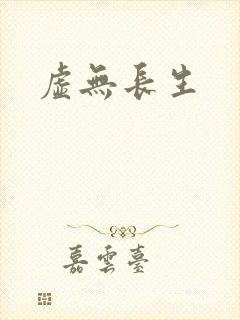 虛無長生
嘉雲臺